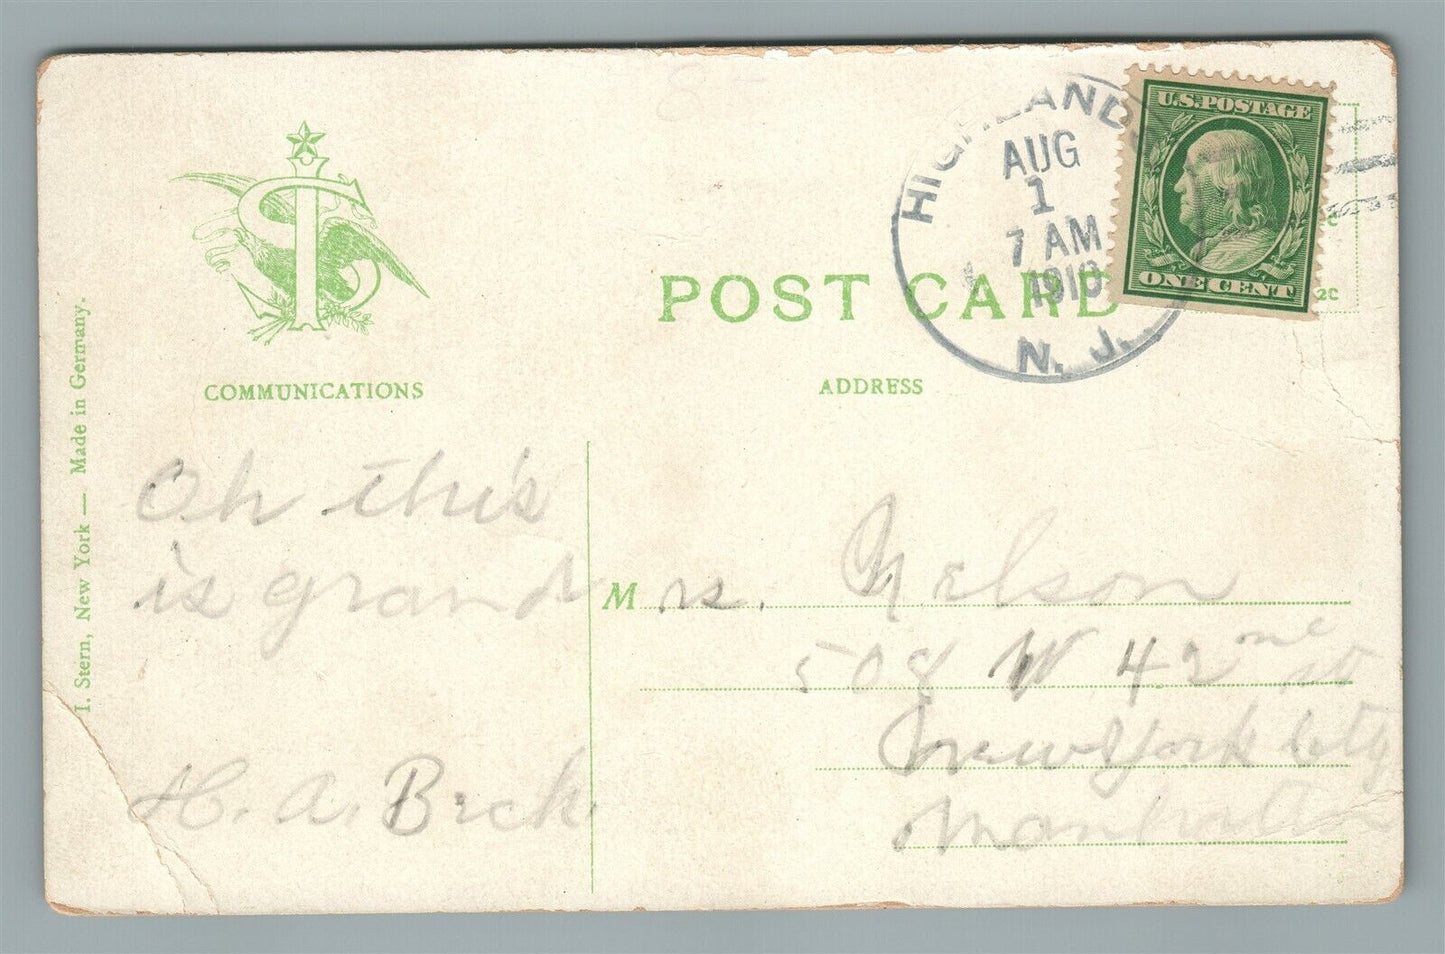 HIGHLANDS
AUG
1
7 AM
1910
N. J.
U.S. POSTAGE
ONE CENT
2c
POST CARD
COMMUNICATIONS
ADDRESS
I. Stern, New York — Made in Germany.
Oh this
is grand
H. A. Beck.
Mrs. Nelson
508 W 42nd st
New York City
Manhattan